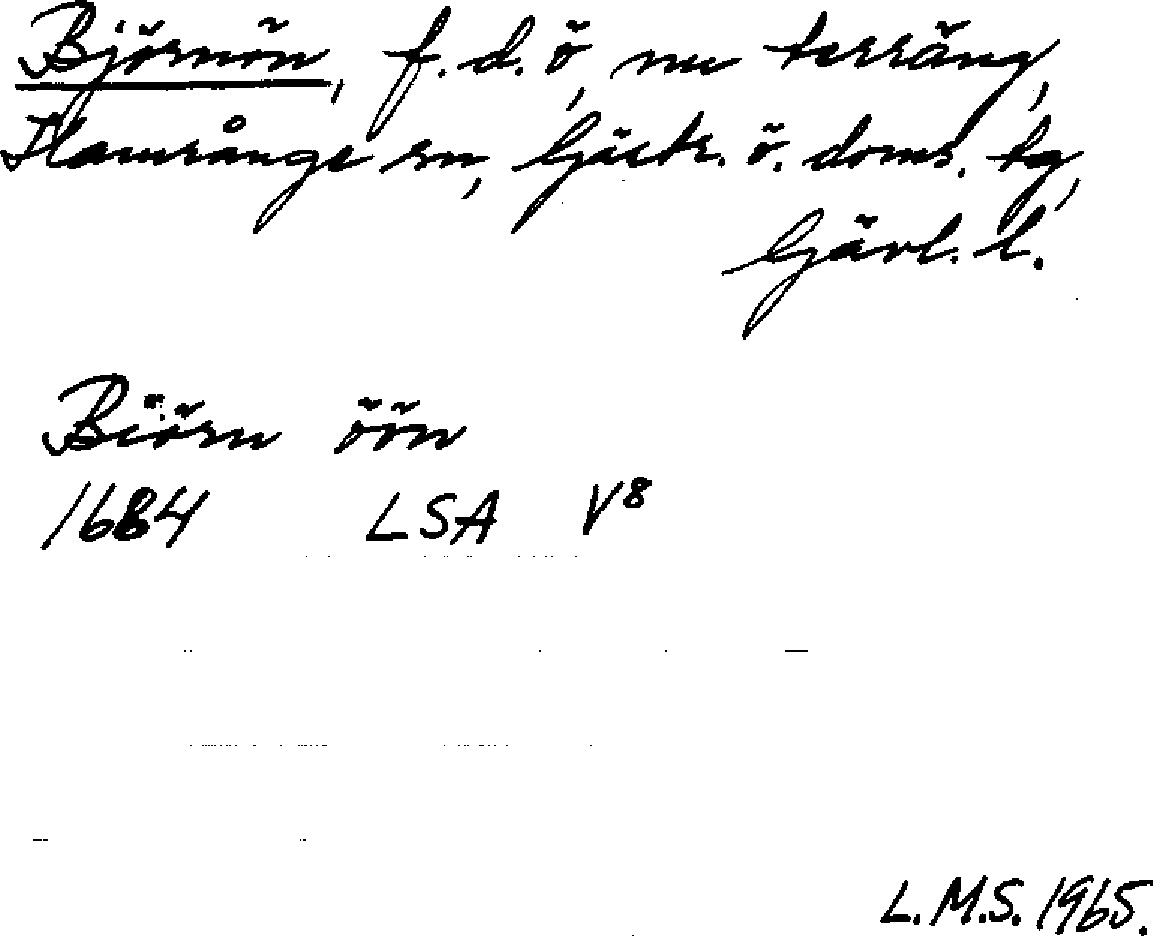 Björnön, f. d. ö, nu terräng,
Hamrånge sn, Gästr. ö. doms. tg,
Gävl. l.
Biörn öön
1684 LSA V8
L.M.S. 1965.